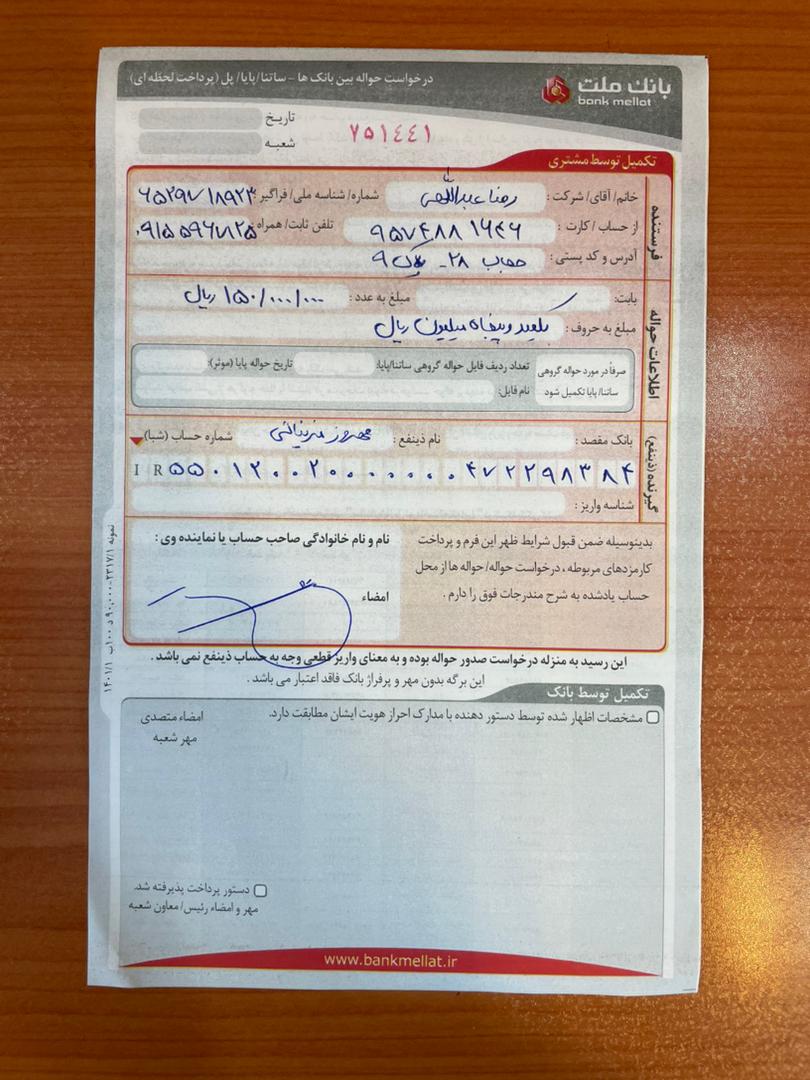 بانک ملت
bank mellat
درخواست حواله بین بانک ها - ساتنا/پایا/پل (پرداخت لحظه ای)
تاریخ
شعبه
۷۵۱۴۴۱
تکمیل توسط مشتری
فرستنده
خانم/آقای/شرکت: رضا عبداللهی شماره/شناسه ملی/فراگیر: ۶۵۲۹۷۱۸۹۲۳
از حساب/کارت: ۹۵۷۴۸۸۱۶۴۶ تلفن ثابت/همراه: ۰۹۱۵۵۹۶۷۸۲۵
آدرس و کد پستی: حجاب ۲۸- پلاک ۹
اطلاعات حواله
بابت: مبلغ به عدد: ۱۵۰/۰۰۰/۰۰۰ ریال
مبلغ به حروف: یکصد و پنجاه میلیون ریال
صرفاً در مورد حواله گروهی ساتنا/پایا تکمیل شود
تعداد ردیف فایل حواله گروهی ساتنا/پایا: تاریخ حواله پایا (موثر):
نام فایل:
گیرنده (ذینفع)
بانک مقصد: نام ذینفع: مهروز شماره حساب (شبا)
IR ۵۵۰۱۲۰۰۲۰۰۰۰۰۰۰۴۷۲۲۹۸۳۸۴
شناسه واریز:
بدینوسیله ضمن قبول شرایط ظهر این فرم و پرداخت
کارمزدهای مربوطه، درخواست حواله/حواله ها از محل
حساب یادشده به شرح مندرجات فوق را دارم.
نام و نام خانوادگی صاحب حساب یا نماینده وی:
امضاء
این رسید به منزله درخواست صدور حواله بوده و به معنای واریز قطعی وجه به حساب ذینفع نمی باشد.
این برگه بدون مهر و پرفراژ بانک فاقد اعتبار می باشد.
تکمیل توسط بانک
مشخصات اظهار شده توسط دستور دهنده با مدارک احراز هویت ایشان مطابقت دارد.
امضاء متصدی
مهر شعبه
دستور پرداخت پذیرفته شد.
مهر و امضاء رئیس/معاون شعبه
www.bankmellat.ir
نمونه ۲۳۱۷/۱-۹۰,۰۰۰ د ۱۰۰ب ۱۴۰۱/۱